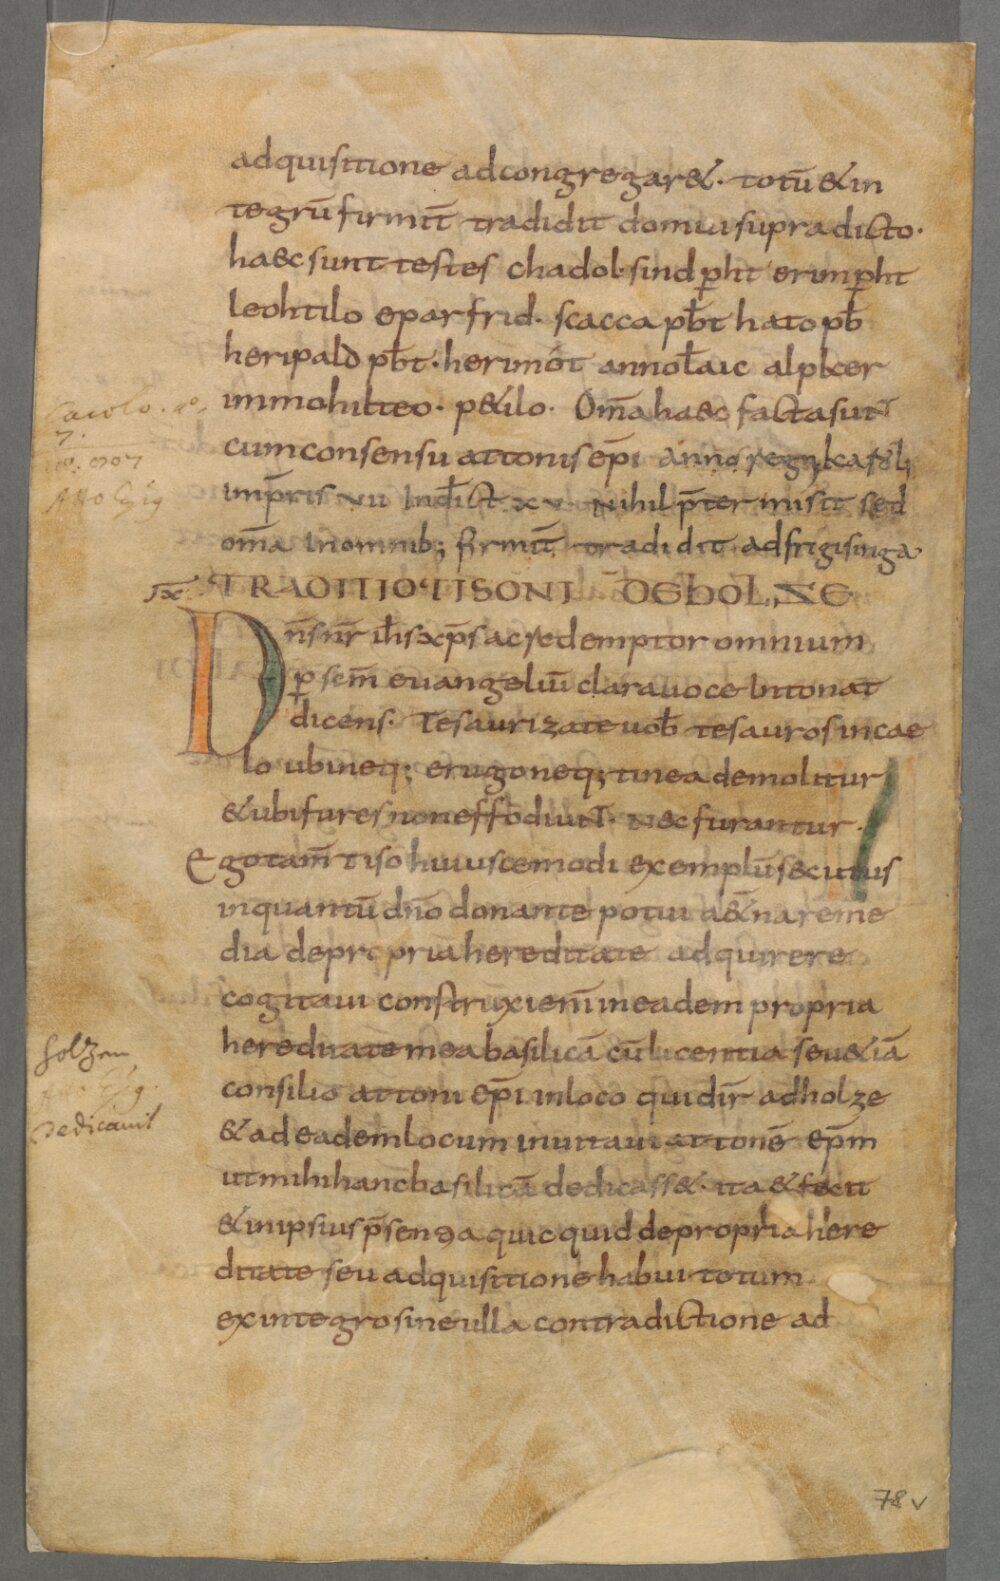 adquisitione adcongregar&. totū &in
tegrū firmit̄ tradidit domui supradicto.
haec sunt testes chadol. sindꝑht erimꝑht
leohtilo eparfrid. scacca pb̄t hato pb̄
heripald pb̄t. herimōt
immohilteo. p&ilo. Om̄a haec facta sunt
cum consensu attonis ep̄i anno regni karoli
imp̄ris VII Indict XV Nihil p̄termisit sed
om̄a In omnib; firmit̄ tradidit ad frigisinga
IX TRADITIO TISONI DE HOLZE
Dn̄s nr̄ ih̄s xp̄s ac redemptor omnium
ꝑ sc̄m evangeliū clara voce Intonat
dicens. Tesaurizate vob̄ tesauros in cae
lo ubi neq; erugo neq; tinea demolitur
&ubi fures non effodiunt. Nec furantur.
Ego tam̄ tiso huiuscemodi exemplū secutus
inquantū dn̄o donante potui a&̄na reme
dia de propria hereditate adquirere
cogitavi construxi eni̅ in eadem propria
hereditate mea basilicā cū licentia seu &iā
consilio attoni ep̄i in loco qui dir̄ adholze
&ad eadem locum invitavi attonē ep̄m
ut mihi hanc basilicā dedicass&. ita &fecit
&in ipsius p̄sentia quicquid de propria here
ditate seu adquisitione habui totum
ex integro sine ulla contradictione ad
Carolo
7.
Holzen
dedicavit
78v